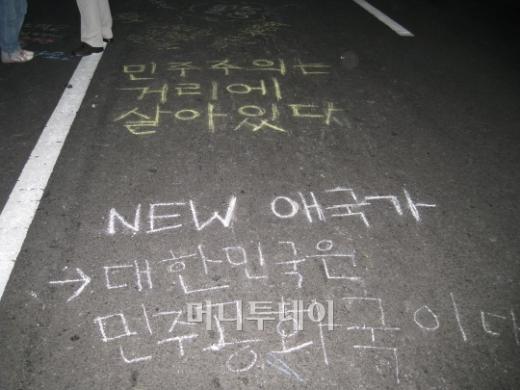 민주주의는
거리에
살아있다
NEW 애국가
→ 대한민국은
머니투데이
민주공화국이다